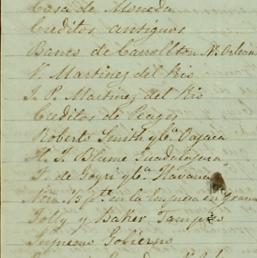 Casa de Moneda
Creditos antiguos
Banco de Carrollton N. Orleans
V. Martinez del Rio
J. P. Martinez del Rio
Creditos de Peages
Roberto Smith y Ca. Oajaca
H. S. Blume Guadalajara
F. de Goyri y Ca. Havana
en la Empresa
Jolly y Baker Tampico
Supremo Gobierno